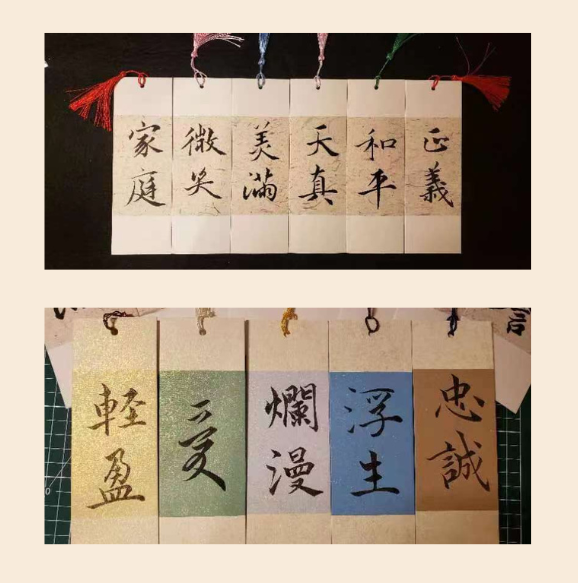 家庭
微笑
美滿
天真
和平
正義
軽盈
愛
爛漫
浮生
忠誠